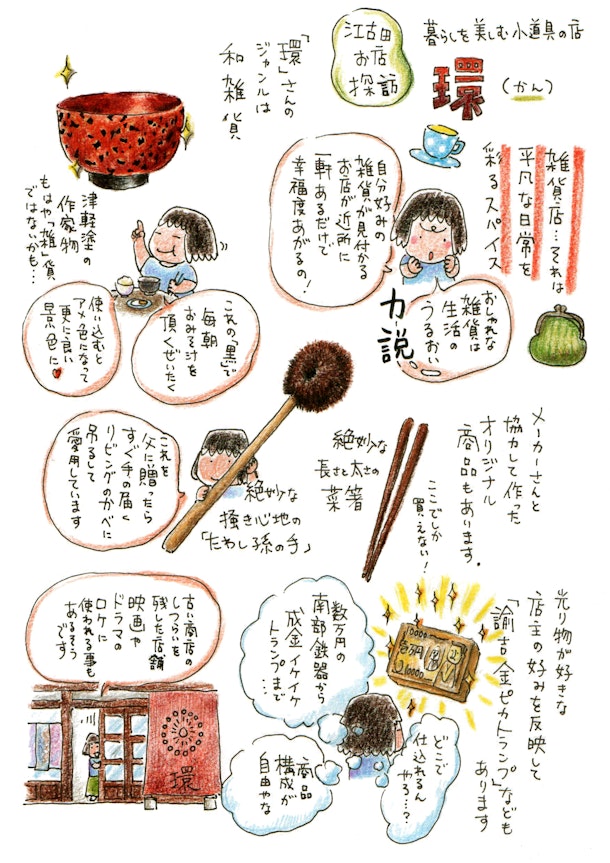 暮らしを美しむ小道具の店
環
(かん)
江古田
お店
探訪
「環」さんの
ジャンルは
和雑貨
雑貨店…それは
平凡な日常を
彩るスパイス
自分好みの
雑貨が見付かる
お店が近所に
一軒あるだけで
幸福度あがるの!
おしゃれな
雑貨は
生活の
うるおい
力説
津軽塗の
作家物
もはや「雑」貨
ではないかも…
これの「黒」で
毎朝
おみそ汁を
頂くぜいたく
使い込むと
アメ色になって
更に良い
景色に♥
メーカーさんと
協力して作った
オリジナル
商品もあります。
ここでしか
買えない!
絶妙な
長さと太さの
菜箸
絶妙な
掻き心地の
「たわし孫の手」
これを
父に贈ったら
すぐ手の届く
リビングのかべに
吊るして
愛用しています
光り物が好きな
店主の好みを反映して
「諭吉金ピカトランプ」なども
あります
10000
壱万円
10000
数万円の
南部鉄器から
成金イケイケ
トランプまで…
どこで
仕入れるん
やろ…?
商品
構成が
自由やな
古い商店の
しつらいを
残した店舗
映画や
ドラマの
ロケに
使われる事も
あるそう
です
環